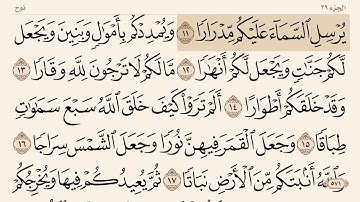 الجزء ٢٩ نوح
يُرْسِلِ ٱلسَّمَآءَ عَلَيْكُم مِّدْرَارًا ١١ وَيُمْدِدْكُم بِأَمْوَٰلٍ وَبَنِينَ وَيَجْعَل
لَّكُمْ جَنَّٰتٍ وَيَجْعَل لَّكُمْ أَنْهَٰرًا ١٢ مَّا لَكُمْ لَا تَرْجُونَ لِلَّهِ وَقَارًا ١٣
وَقَدْ خَلَقَكُمْ أَطْوَارًا ١٤ أَلَمْ تَرَوْا۟ كَيْفَ خَلَقَ ٱللَّهُ سَبْعَ سَمَٰوَٰتٍ
طِبَاقًا ١٥ وَجَعَلَ ٱلْقَمَرَ فِيهِنَّ نُورًا وَجَعَلَ ٱلشَّمْسَ سِرَاجًا ١٦
وَٱللَّهُ أَنۢبَتَكُم مِّنَ ٱلْأَرْضِ نَبَاتًا ١٧ ثُمَّ يُعِيدُكُمْ فِيهَا وَيُخْرِجُكُمْ
٥٧١